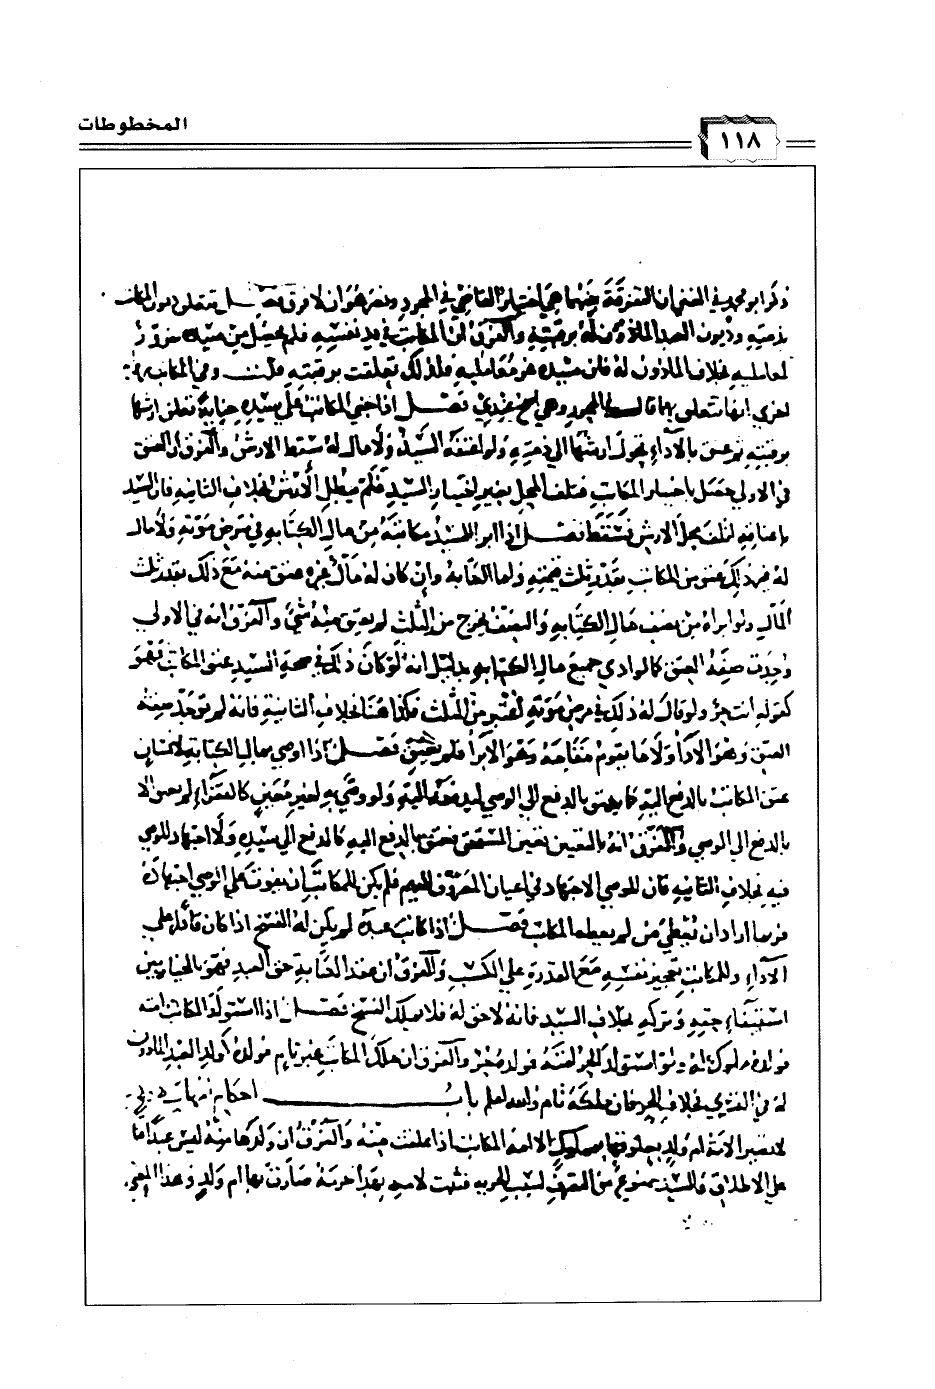 المخطوطات
١١٨
ذكر ابو محمد في المغني ان التفرقة بينهما هي اختيار القاضي في المجرد ونصر هو ان لا فرق فصل تتعلق ديون المكاتب
بذمته وديون العبد المأذون له برقبته والفرق ان المكاتب في يد نفسه فلم يحصل من سيده غرور
لمعامليه بخلاف المأذون له فان سيده غر معامليه فلذلك تعلقت برقبته قلت وفي المكاتب
اخرى انها تتعلق بهما قاله في المجرد وهي اصح عندي فصل اذا جنى المكاتب على سيده جناية تعلق ارشها
برقبته ثم عتق بالاداء تحول ارشها الى ذمته ولو اعتقه السيد ولا مال له سقط الارش والفرق ان العتق
في الاولى حصل باختيار المكاتب فتلف المحل بغير اختيار السيد فلم يبطل الارش بخلاف الثانية فان السيد
باعتاقه اتلف محل الارش فسقط فصل اذا ابرا السيد مكاتبه من مال الكتابة في مرض موته ولا مال
له غير ذلك عتق من المكاتب بقدر ثلث قيمته ومال الكتابة وان كان له مال غيره عتق منه مع ذلك بقدر ثلث
المال ولو ابراه من نصف مال الكتابة والنصف يخرج من الثلث لم يعتق منه شيء والفرق انه في الاولى
وجدت صفة العتق كما لو ادى جميع مال الكتابة بدليل انه لو كان ذلك في صحة السيد عتق المكاتب فهو
كقوله انت حر ولو قال له ذلك في مرض موته اعتبر من الثلث فكذا هنا بخلاف الثانية فانه لم توجد صفة
العتق وهو الاداء ولا ما يقوم مقامه وهو الابرا فلم يعتق فصل اذا اوصي بمال الكتابة لانسان
عتق المكاتب بالدفع اليه كما يعتق بالدفع الى الوصي ليدفعه اليه ولو وصي به لغير معين كالفقراء لم يعتق الا
بالدفع الى الوصي والفرق انه بالتعيين تعين المستحق فعتق بالدفع اليه كالدفع الى سيده ولا اجتهاد للوصي
فيه بخلاف الثانية فان للوصي الاجتهاد في اعيان المصروف اليهم فلم يكن للمكاتب ان يفوت على الوصي اجتهاده
فربما اراد ان يعطي من لم يعطه المكاتب فصل اذا كاتب عبده لم يكن له الفسخ اذا كان قادرا على
الاداء وللمكاتب تعجيز نفسه مع القدرة على الكسب والفرق ان عقد الكتابة حق العبد فهو بالخيار بين
استيفاء حقه وتركه بخلاف السيد فانه لا حق له فلا يملك الفسخ فصل اذا استولد المكاتب امته
فولده مملوك له ولو استولد الحر امته فولده حر والفرق ان ملك المكاتب غير تام فولده كولد العبد المأذون
له في التسري بخلاف الحر فان ملكه تام والله اعلم باب احكام امهات
لا تصير الامة ام ولد بعلوقها بمملوك الا امة المكاتب اذا علقت منه والفرق ان ولدها منه ليس عبدا
على الاطلاق فالسيد ممنوع من التصرف لسبب الحرية فثبت لامه بهذا حرمة صارت بها ام ولد وهذا المعنى